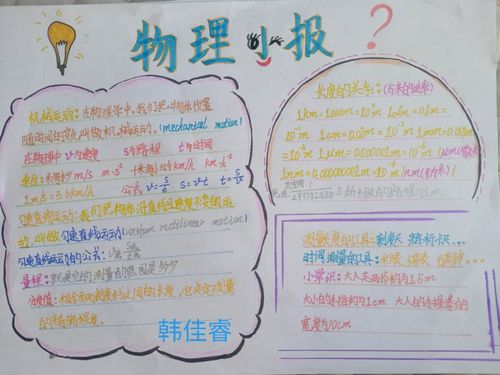 物理小报?
机械运动:在物理学中,我们把物体位置
随时间的变化叫做机械运动。(mechanical motion)
在物理中 v为速度 s为路程 t为时间
单位:米每秒 m/s m·s⁻¹ 千米每小时 km/h km·h⁻¹
1m/s=3.6km/h 公式 v=s/t s=vt t=s/v
匀速直线运动:我们把物体沿直线且速度不变的运
动,叫做匀速直线运动(uniform rectilinear motion)
匀速直线运动的公式:
量程:
分度值:相邻两刻度线之间的长度,它决定测量
的精确程度。
韩佳睿
长度的关系:(与米的进率)
1km=1000m=10³m 1dm=0.1m=
10⁻¹m 1cm=0.01m=10⁻²m 1mm=0.001m
=10⁻³m 1μm=0.000001m=10⁻⁶m(μm微米)
1nm=0.000000001m=10⁻⁹m(nm纳米)
测量长度的工具:刻度尺 游标卡尺...
时间测量的工具:秒表 停表 石英钟...
小常识:大人走两步约为1.5m
大小拇指的指约为1cm 大人的手掌的
宽度为10cm